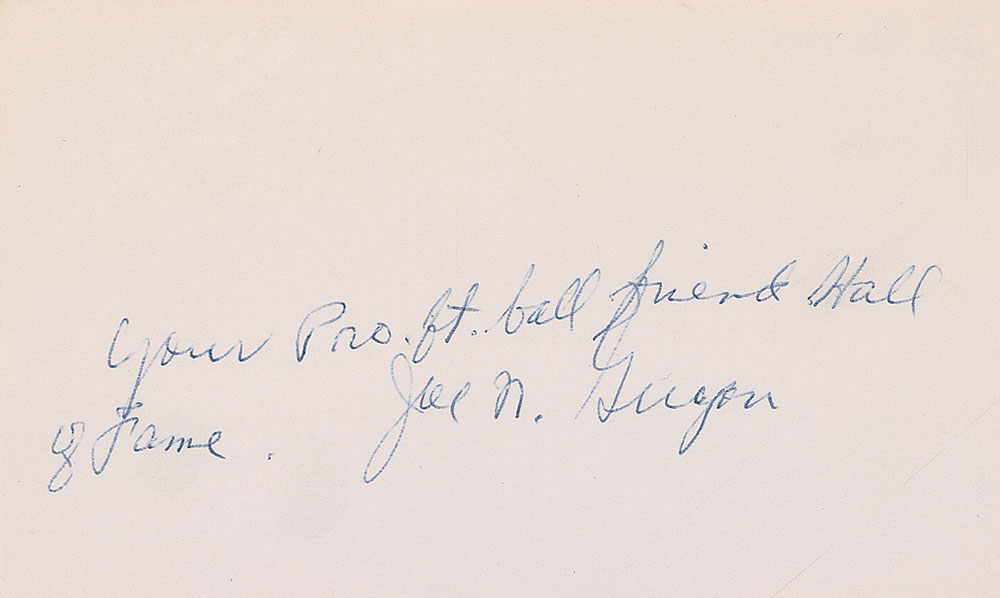 Your Pro. ft. ball friend Hall
of Fame. Joe N. Guyon